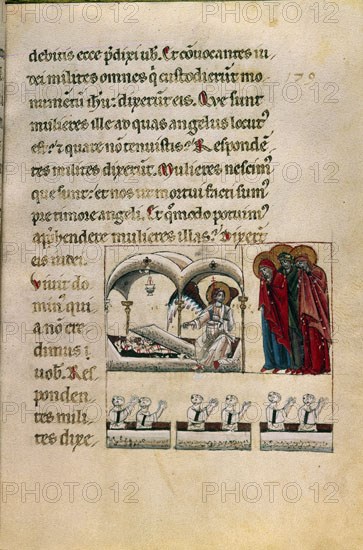 debitis ecce p̄dixi uob̄. Et cōuocantes iu
dei milites omnes q̄ custodierūt mo
numētū ih̄u: dixerūt eis. Que sunt
mulieres ille ad quas angelus locut'
est: et quare nō tenuistis? Respondē
tes milites dixerūt. Mulieres nescim'
que sunt: et nos ut mortui facti sum'
pre timore angeli. Et q̄modo potuim'
app̄hendere mulieres illas? Dixerūt
eis iudei.
Uiuit do
minus qui
a nō cre
dimus
uob̄. Res
ponden
tes mili
tes dixe
70
PHOTO 12